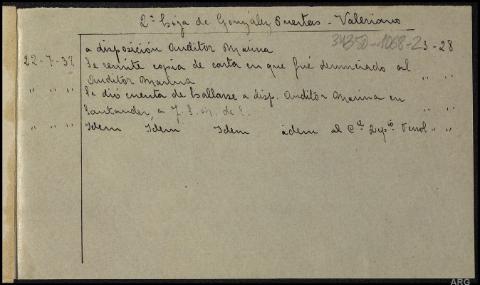 2ª hoja de González Puertas - Valeriano
34350-1068-23-28
a disposición Auditor Marina
22-7-37 Se remite copia de carta en que fué denunciado al
Auditor Marina " "
" " " Se dió cuenta de hallarse a disp. Auditor Marina en
Santander, a J. S. M. de E. " "
" " " Idem Idem Idem idem al Cte " "
ARG